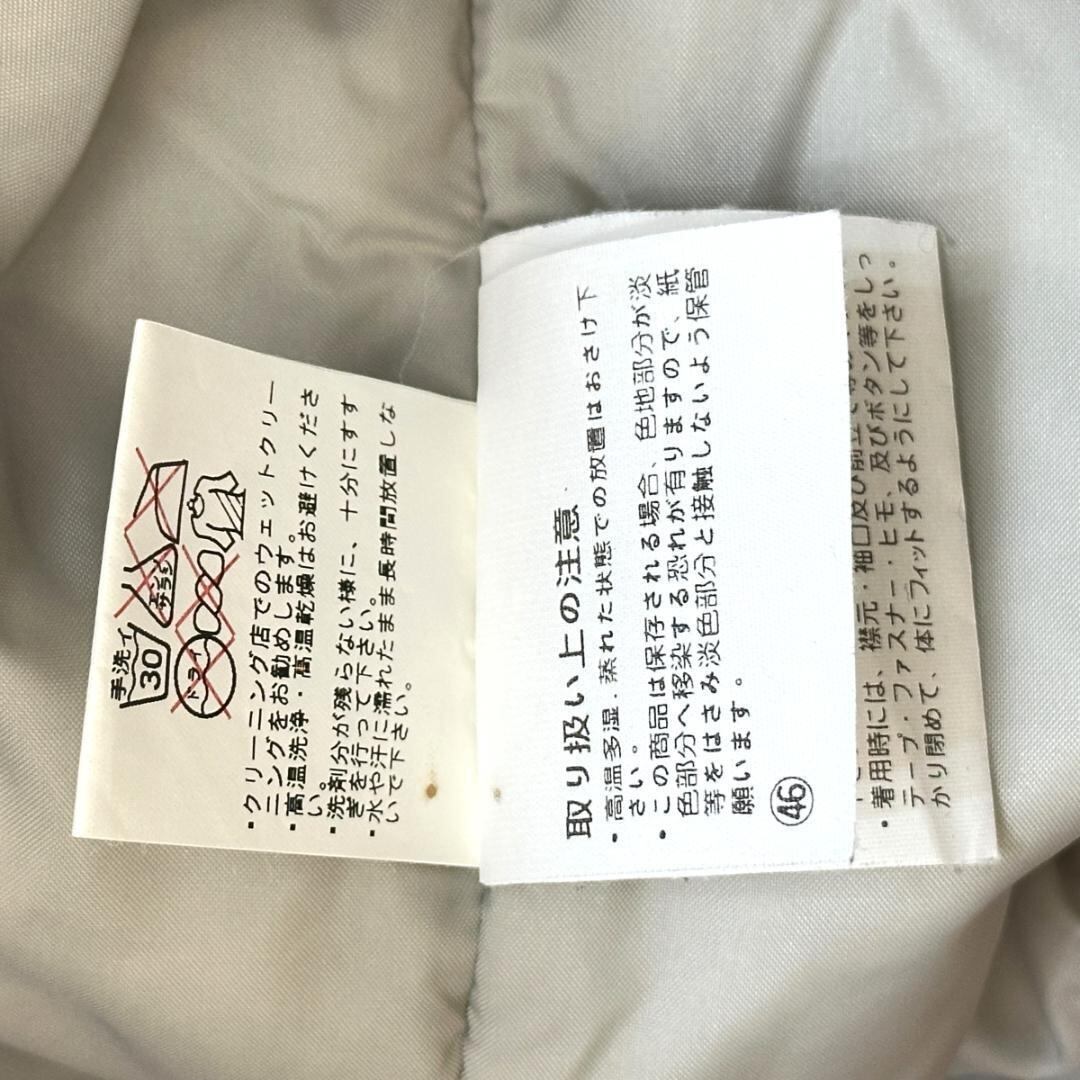 手洗イ
30
エンソ
サラシ
ドライ
・クリーニング店でのウェットクリー
ニングをお勧めします。
・高温洗浄・高温乾燥はお避けくださ
い。
・洗剤分が残らない様に、十分にすす
ぎを行って下さい。
・水や汗に濡れたまま長時間放置しな
いで下さい。
取り扱い上の注意
・高温多湿．蒸れた状態での放置はおさけ下
さい。
・この商品は保存される場合、色地部分が淡
色部分へ移染する恐れが有りますので、紙
等をはさみ淡色部分と接触しないよう保管
願います。
46
・着用時には、襟元・袖口及び前立
テープ・ファスナー・ヒモ、及びボタン等をしっ
かり閉めて、体にフィットするようにして下さい。